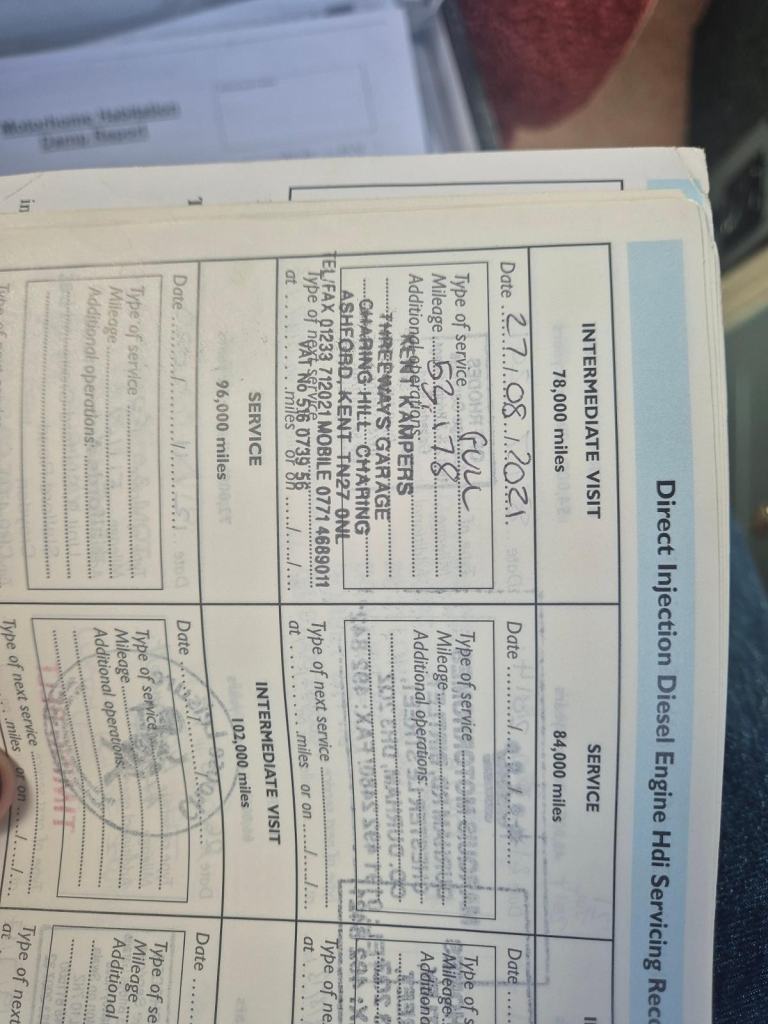 Motorhome Habitation
Damp Report
Direct Injection Diesel Engine Hdi Servicing Rec
INTERMEDIATE VISIT
78,000 miles
Date 27/08/2021
Type of service Full
Mileage 53,178
Additional operations:
KENT KAMPERS
THREEWAYS GARAGE
CHARING HILL CHARING
ASHFORD, KENT TN27 0NL
TEL/FAX 01233 712021 MOBILE 0771 4689011
VAT No 516 0739 56
Type of next service
at ........ miles or on ...../...../.....
SERVICE
84,000 miles
Date ......../......../........
Type of service
Mileage
Additional operations:
Type of next service
at ........ miles or on ...../...../.....
Date
Type of s
Mileage
Additiona
Type of ne
at
SERVICE
96,000 miles
Date ......../......../........
Type of service
Mileage
Additional operations:
Type of
INTERMEDIATE VISIT
102,000 miles
Date ......../......../........
Type of service
Mileage
Additional operations:
Type of next service
miles or on ...../...../.....
Date
Type of se
Mileage
Additional
Type of next
at
in